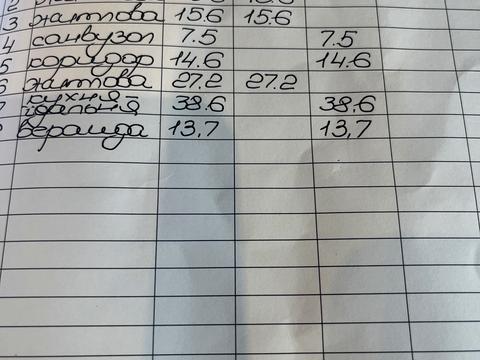 3 житлова 15.6 15.6
4 санвузол 7.5 7.5
5 коридор 14.6 14.6
6 житлова 27.2 27.2
кухня-
їдальня 38.6 38.6
веранда 13,7 13,7